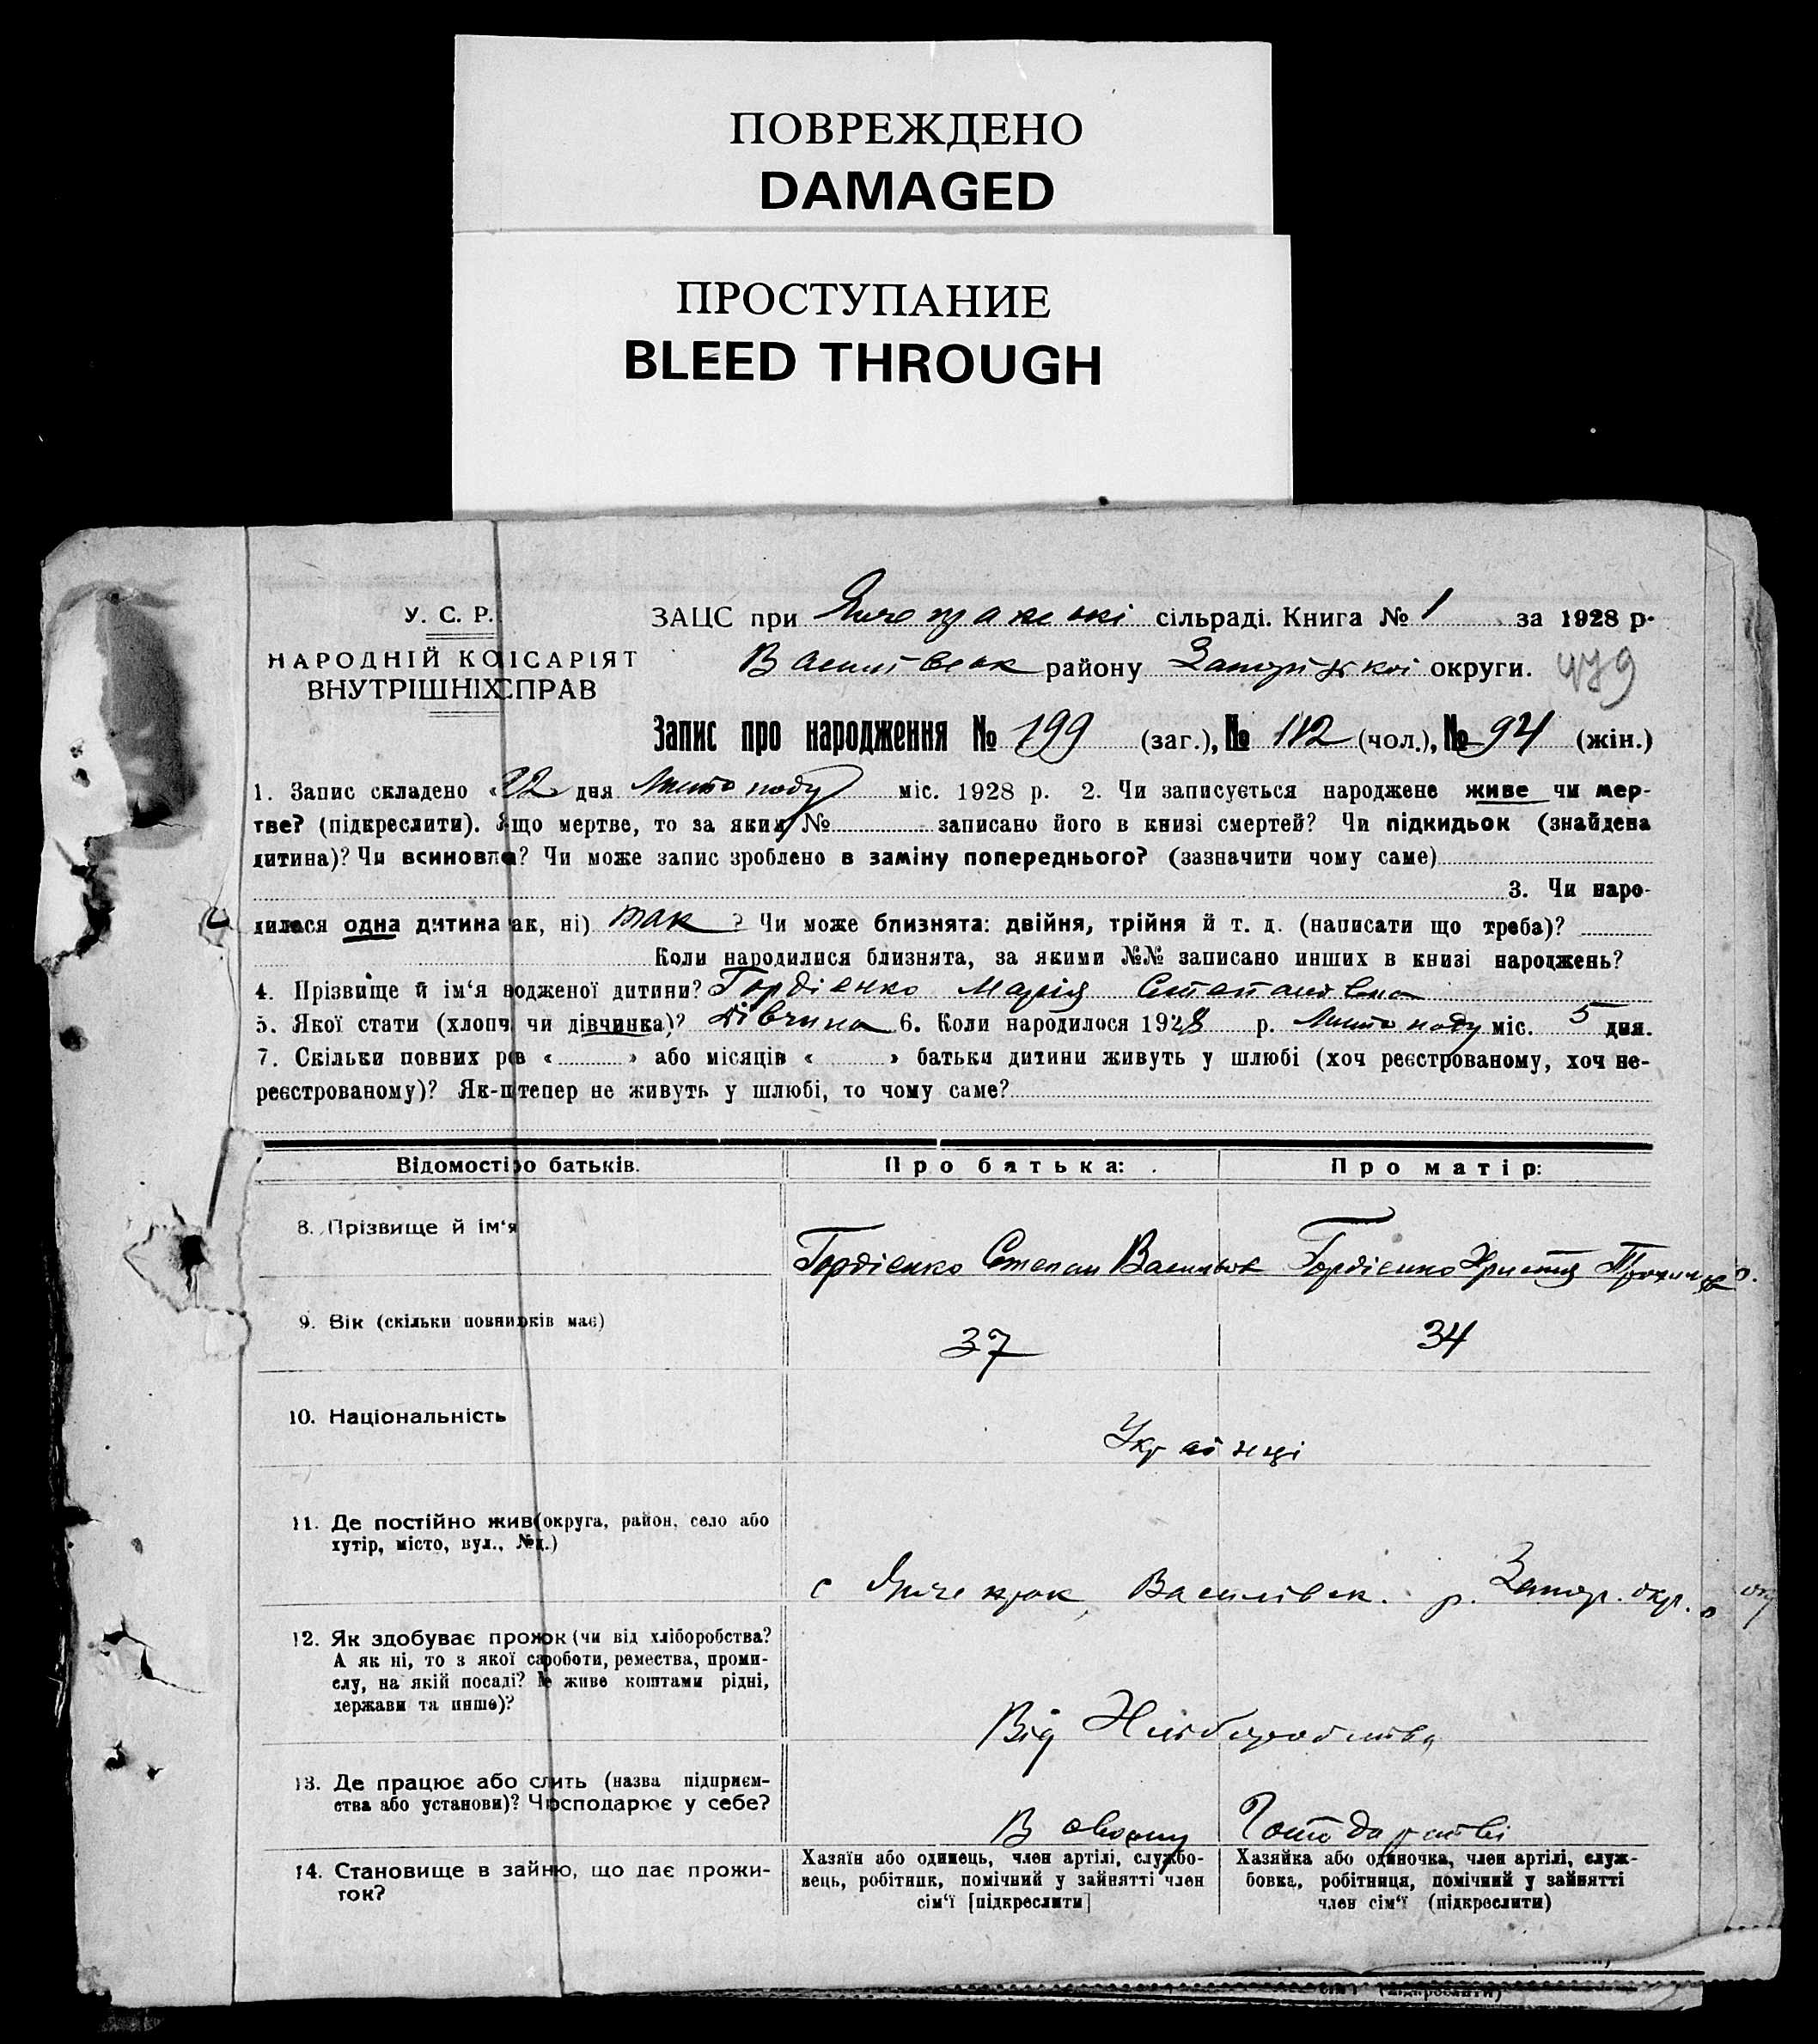 ПОВРЕЖДЕНО
DAMAGED
ПРОСТУПАНИЕ
BLEED THROUGH
У. С. Р.
НАРОДНІЙ КОІСАРІЯТ
ВНУТРІШНІХ СПРАВ
ЗАЦС при сільраді. Книга № 1 за 1928 р.
Василівськ району Запорізької округи. 479
Запис про народження № 199 (заг.), № 112 (чол.), № 94 (жін.)
1. Запис складено «22 дня Листопаду міс. 1928 р. 2. Чи записується народжене живе чи мер-
тве? (підкреслити). Якщо мертве, то за яким № записано його в книзі смертей? Чи підкидьок (знайдена
дитина)? Чи всиновле? Чи може запис зроблено в заміну попереднього? (зазначити чому саме)
3. Чи наро-
дилася одна дитина ак, ні) так ? Чи може близнята: двійня, трійня й т. д. (написати що треба)?
Коли народилися близнята, за якими №№ записано инших в книзі народжень?
4. Прізвище й ім‘я водженої дитини? Гордієнко Марія Степановна
5. Якої стати (хлопч чи дівчинка)? дівчина 6. Коли народилося 1928 р. Листопаду міс. 5 дня.
7. Скільки повних рв « » або місяців « » батьки дитини живуть у шлюбі (хоч реєстрованому, хоч не-
реєстрованому)? Як-щтепер не живуть у шлюбі, то чому саме?
Відомості о батьків. Про батька: Про матір:
8. Прізвище й ім‘я Гордієнко Степан Васильов Гордієнко Христя
9. Вік (скільки повнихків має) 37 34
10. Національність Українці
11. Де постійно жив(округа, район, село або
хутір, місто, вул., №д.)
с Василівськ. р. Запор. окр.
12. Як здобуває прожок (чи від хліборобства?
А як ні, то з якої сароботи, ремества, проми-
слу, на якій посаді? живе коштами рідні,
держави та инше)?
Від Хліборобства
13. Де працює або слить (назва підприєм-
ства або установи)? Чосподарює у себе?
В своєму Господарстві
14. Становище в зайню, що дає прожи-
ток?
Хазяїн або одинець, член артілі, службо-
вець, робітник, помічний у зайнятті член
сім‘ї [підкреслити]
Хазяйка або одиночка, член артілі, служ-
бовка, робітниця, помічний у зайнятті
член сім‘ї (підкреслити)